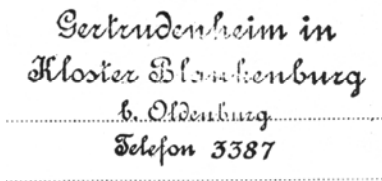 Gertrudenheim in
Kloster Blankenburg
b. Oldenburg
Telefon 3387